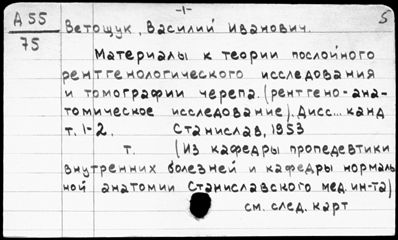 -1-
5
А 55
75
Ветощук, Василий Иванович.
Материалы к теории послойного
рентгенологического исследования
и томографии черепа. (рентгено-ана-
томическое исследование). Дисс... канд
т. 1-2. Станислав, 1953
т. (Из кафедры пропедевтики
внутренних болезней и кафедры нормаль
ной анатомии Станиславского мед. ин-та)
см. след. карт